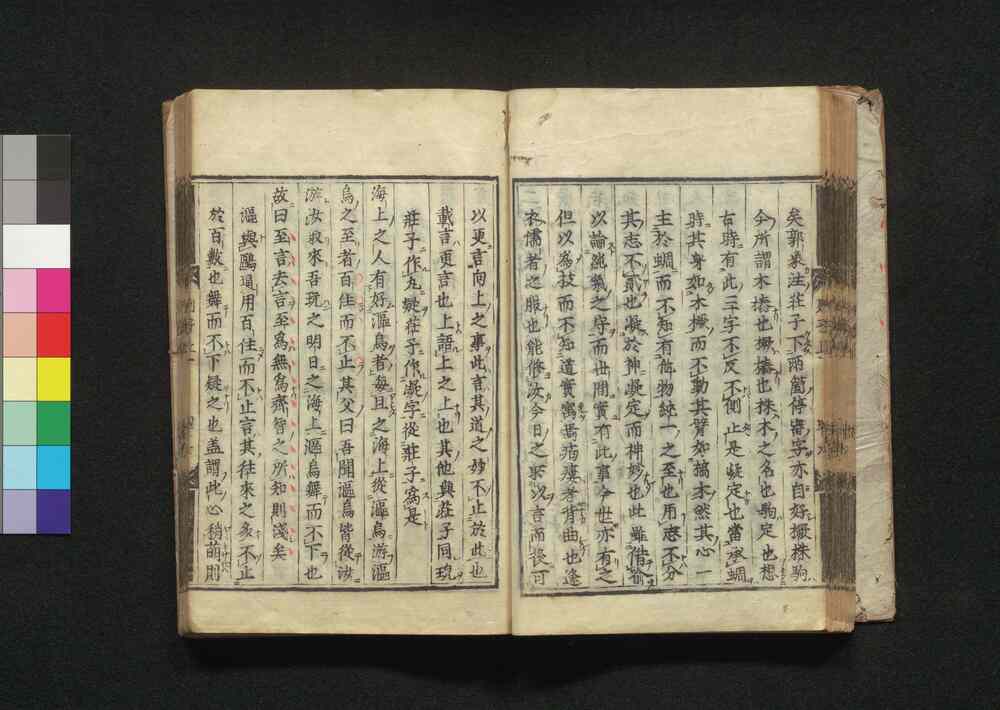 矣郭象注莊子下兩箇停審字亦自好橛株駒
今所謂木樁也橛樁也株木之名也駒定也想
古時有此三字不反不側止是凝定也當承蜩
時其身如木橛而不動其臂如槁木然其心一
主於蜩而不知有他物純一之至也用志不分
其志不貳也凝於神凝定而神妙也此雖借喻
以論純氣之守而世間實有此事今世亦有之
但以為技而不知道實寓焉痀僂者背曲也逢
衣儒者之服也能修汝今日之所以言而後可
以更言向上之事此言其道之妙不止於此也
載言更言也上語上之上也其他與莊子同
莊子作丸疑莊子作凝字從莊子為是
海上之人有好漚鳥者每旦之海上從漚鳥游漚
鳥之至者百住而不止其父曰吾聞漚鳥皆從汝
游汝取來吾玩之明日之海上漚鳥舞而不下也
故曰至言去言至為無為齊智之所知則淺矣
漚與鷗通用百住而不止言其往來之多不止
於百數也舞而不下疑之也蓋謂此心稍萌則